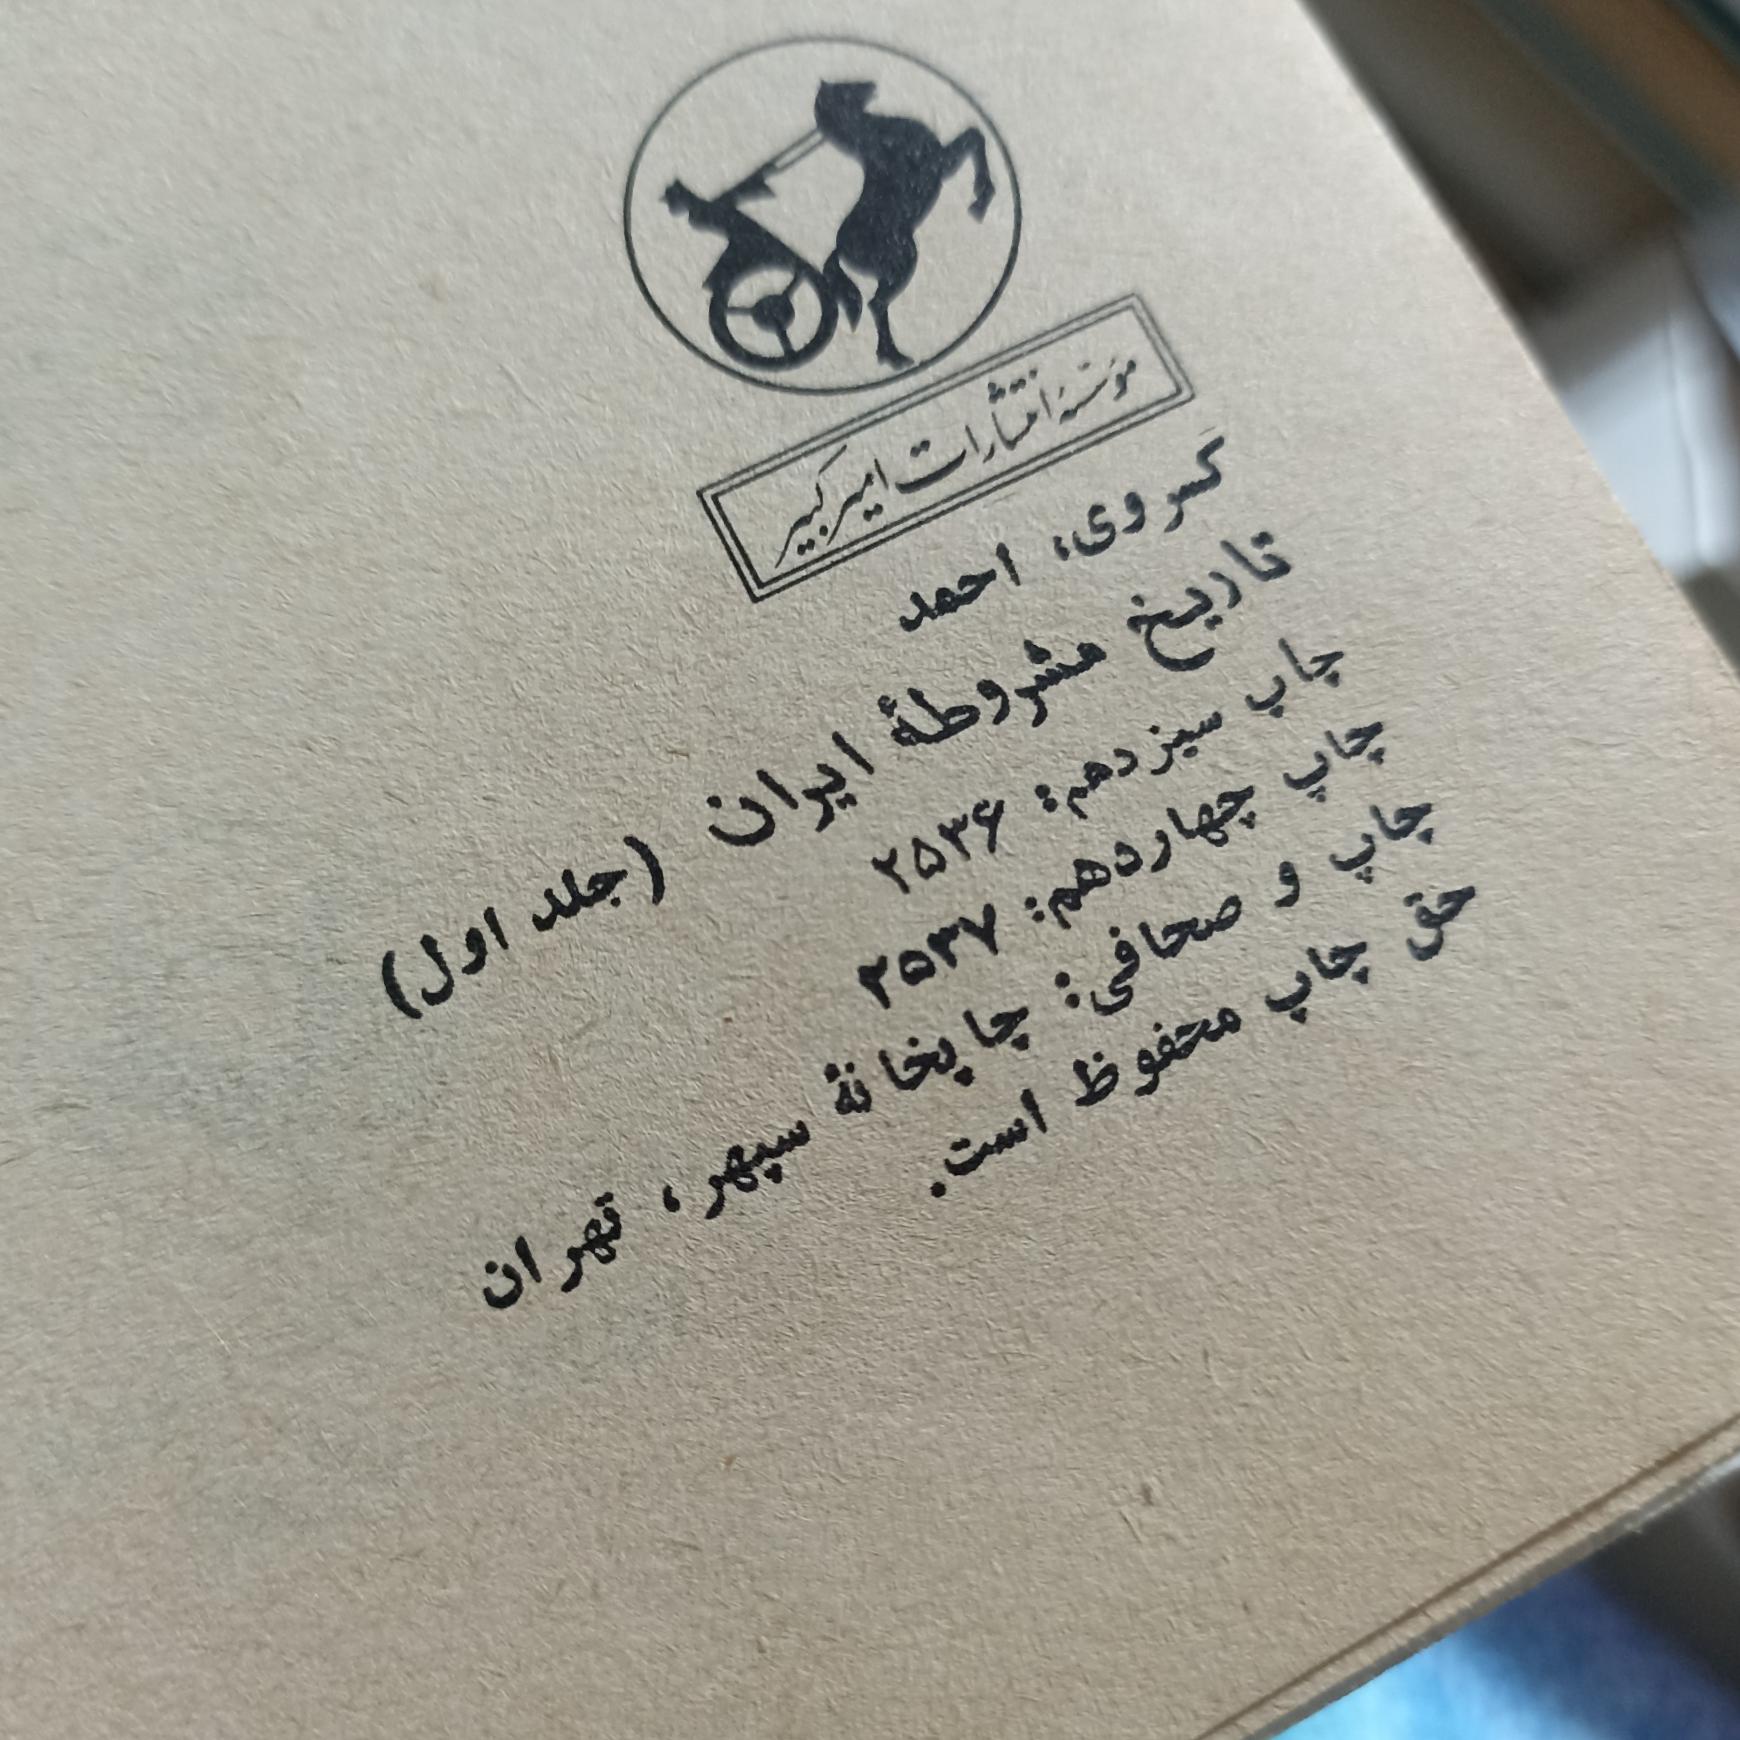 مؤسسهٔ انتشارات امیرکبیر
کسروی، احمد
تاریخ مشروطهٔ ایران (جلد اول)
چاپ سیزدهم: ۲۵۳۶
چاپ چهاردهم: ۲۵۳۷
چاپ و صحافی: چاپخانهٔ سپهر، تهران
حق چاپ محفوظ است.